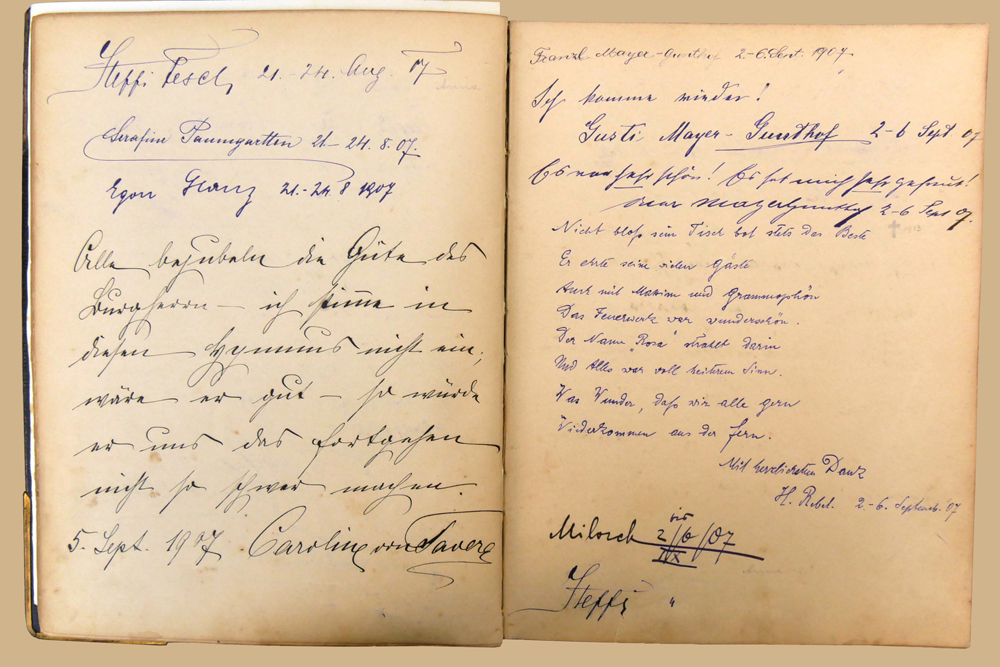 Steffi Tesch, 21.-24. Aug 07
Serafine Paumgartten 21-24.8.07.
Egon Glanz 21.-24.8 1907
Alle bejubeln die Güte des
Burgherrn – ich stimme in
diesen Hymnus nicht ein;
wäre er gut – so würde
er uns das Fortgehen
nicht so schwer machen.
5. Sept. 1907. Caroline von Tavera
Franzl Mayer-Gunthof 2-6. Sept. 1907.
Ich komme wieder!
Gusti Mayer-Gundhof 2-6 Sept 07
Es war sehr schön! Es hat mich sehr gefreut!
Mayergunthof 2-6 Sept 07.
Nicht bloß sein Tisch bot stets das Beste
Er ehrte seine vielen Gäste
Auch mit Maxim und Grammophon
Das Feuerwerk war wunderschön.
Der Name „Rosa" strahlt darin
Und Alles war voll heitrem Sinn.
Was Wunder, daß wir alle gern
Wiederkommen aus der Fern.
Mit herzlichsten Dank
H. Rebel. 2.-6. September '07
bis
Milosch 2/6/07
IX
Steffi "